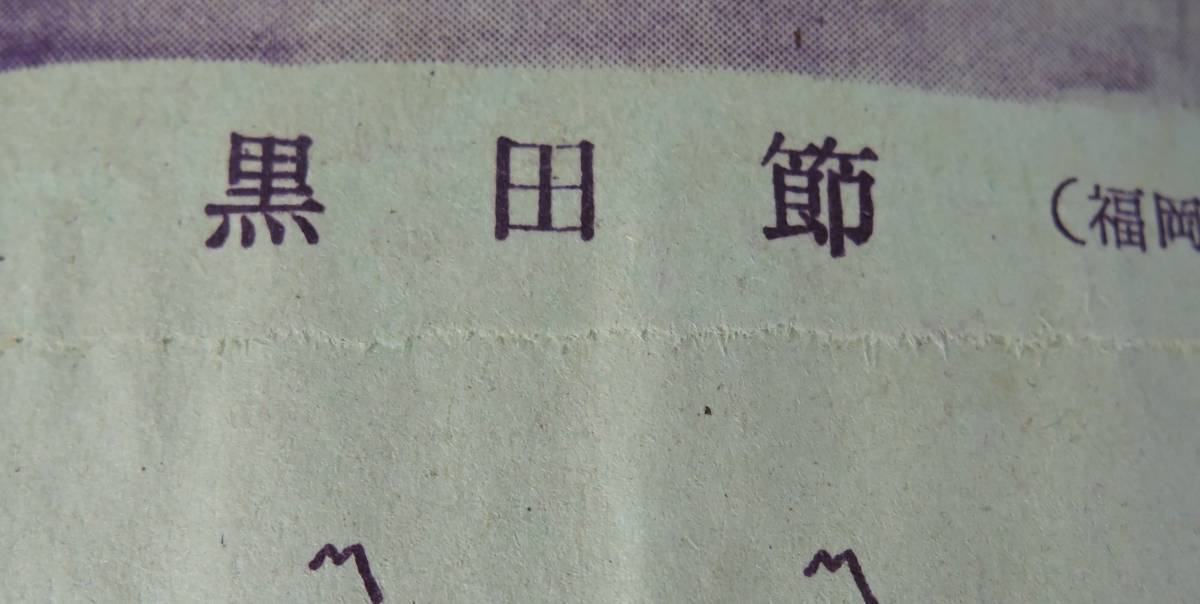 黒田節（福岡